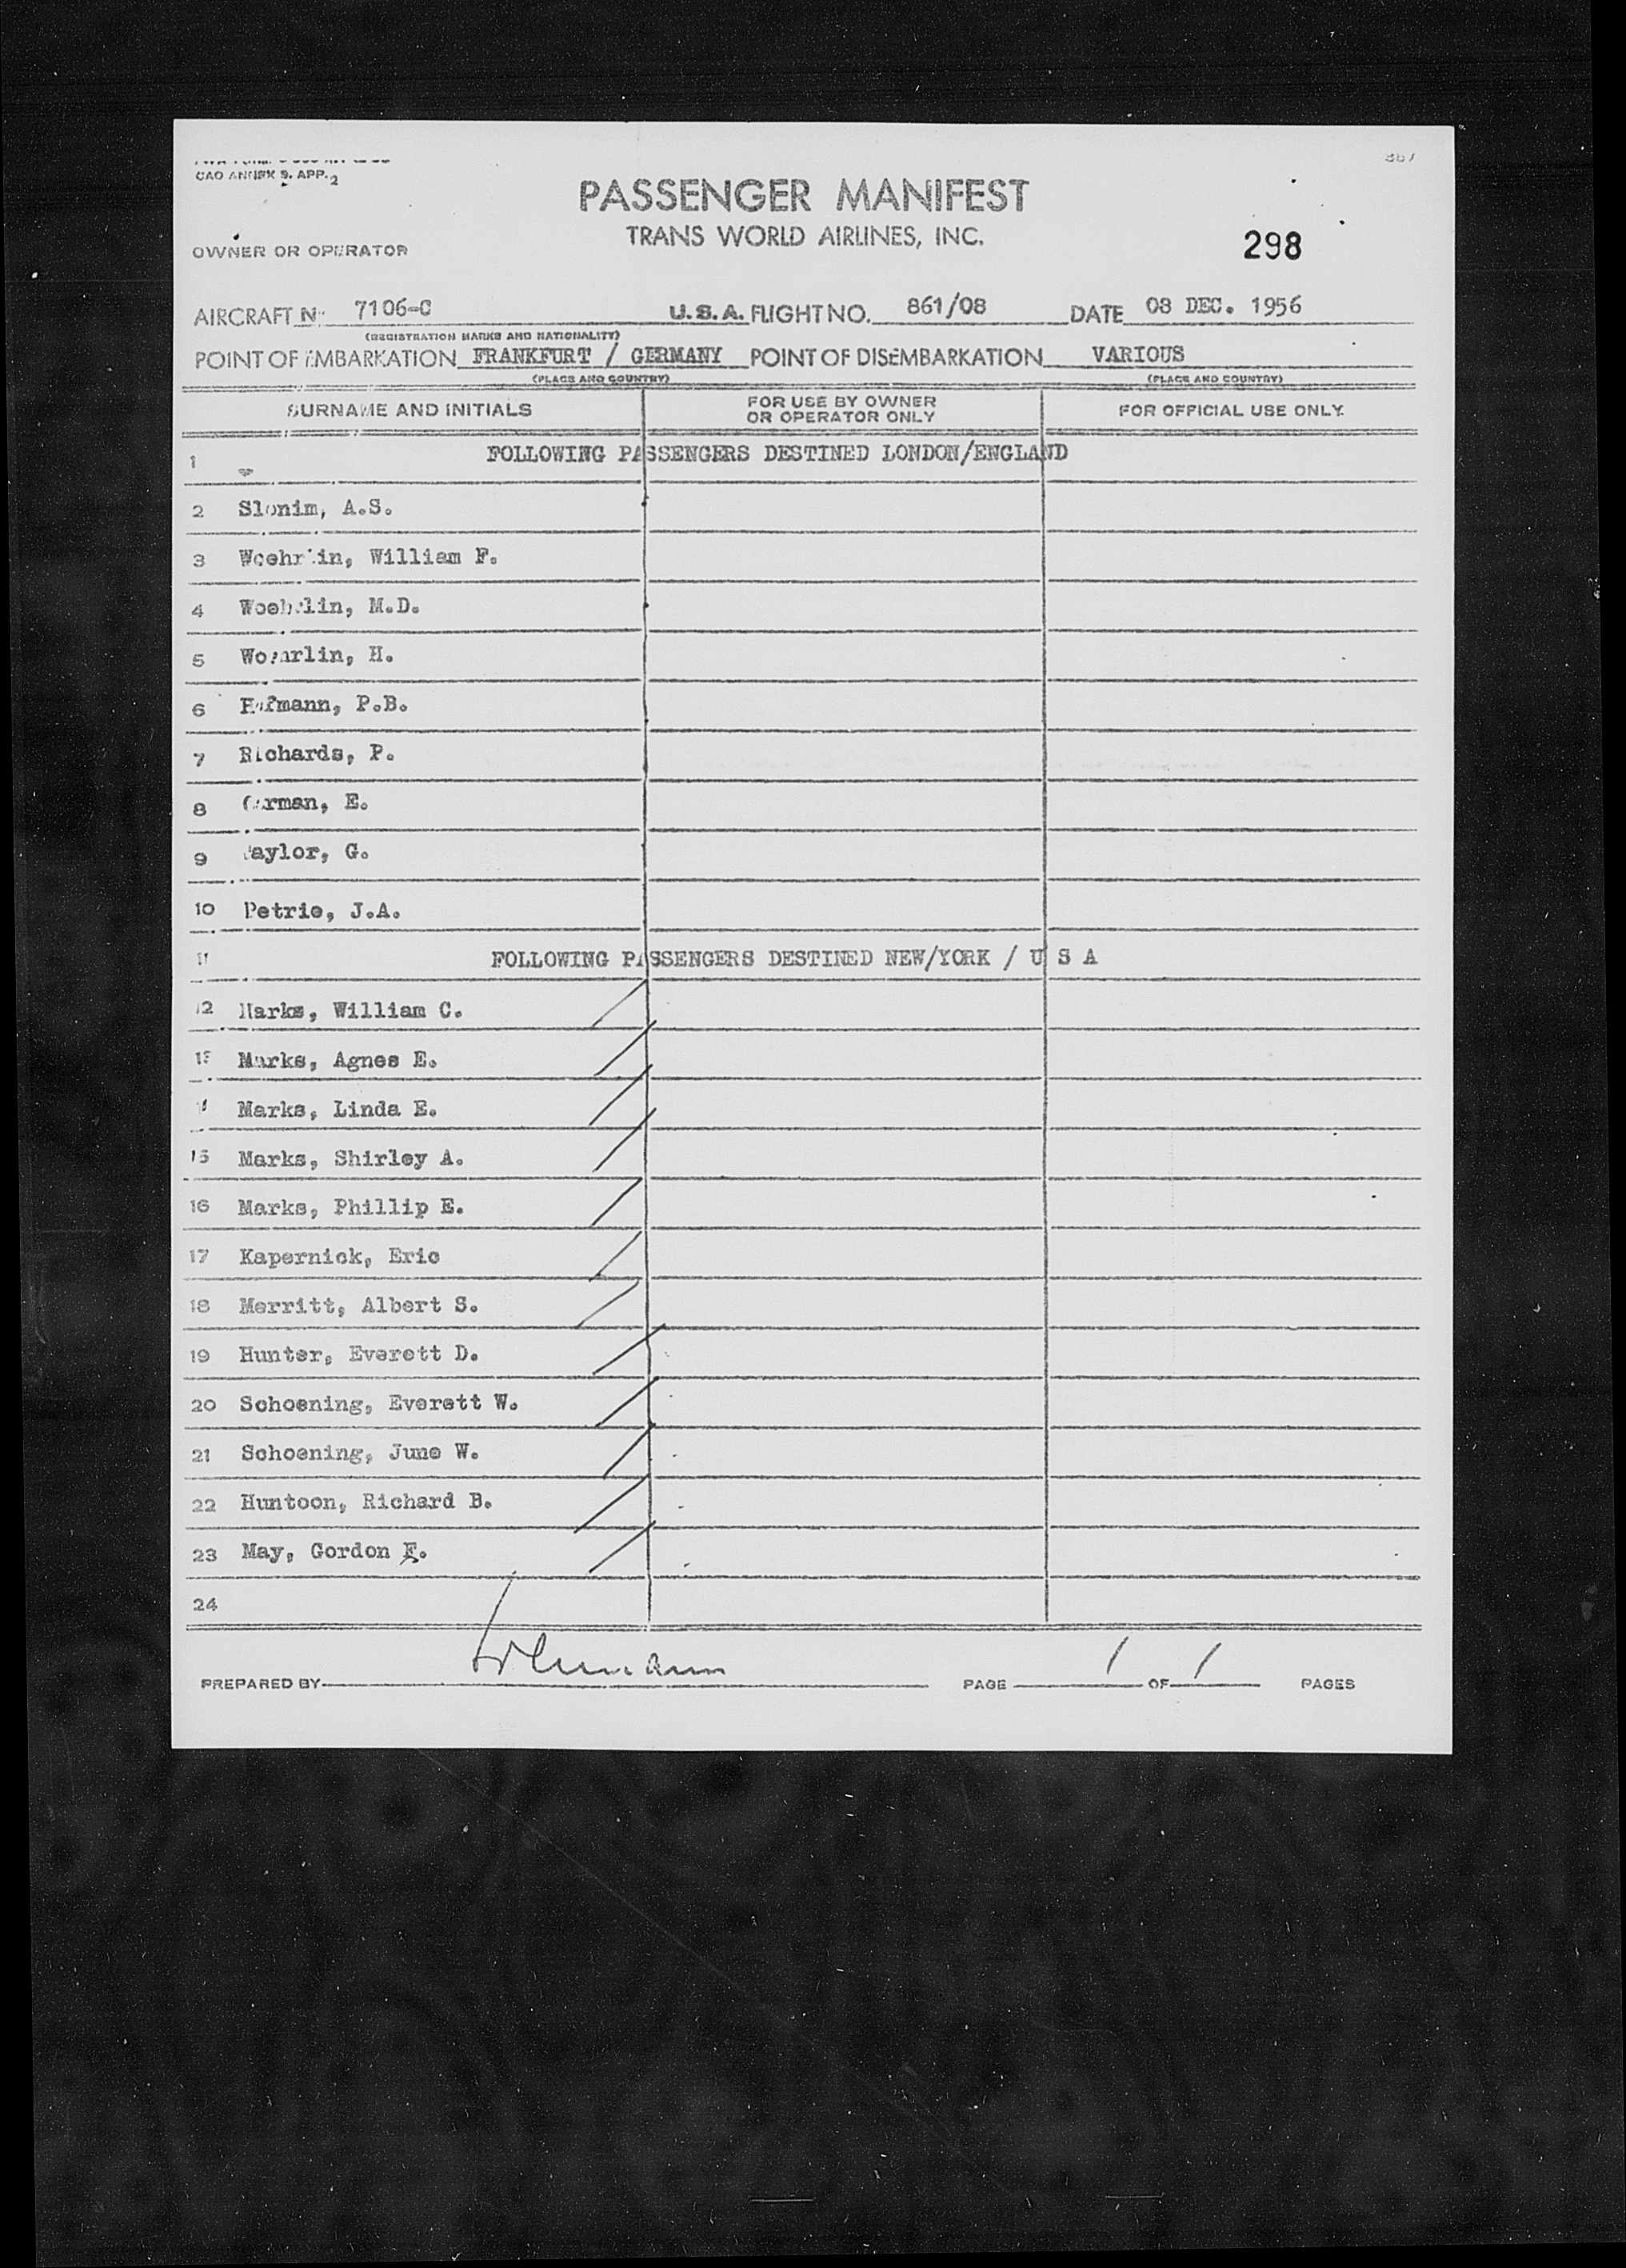 CAO ANNEX 9. APP. 2
PASSENGER MANIFEST
TRANS WORLD AIRLINES, INC.
298
OWNER OR OPERATOR
AIRCRAFT N 7106-C U.S.A. FLIGHT NO. 861/08 DATE 08 DEC. 1956
(REGISTRATION MARKS AND NATIONALITY)
POINT OF EMBARKATION FRANKFURT / GERMANY POINT OF DISEMBARKATION VARIOUS
(PLACE AND COUNTRY) (PLACE AND COUNTRY)
SURNAME AND INITIALS FOR USE BY OWNER OR OPERATOR ONLY FOR OFFICIAL USE ONLY
1 FOLLOWING PASSENGERS DESTINED LONDON/ENGLAND
2 Slonim, A.S.
3 Woehrlin, William F.
4 Woehrlin, M.D.
5 Woehrlin, H.
6 Hofmann, P.B.
7 Richards, P.
8 E.
9 Taylor, G.
10 Petrie, J.A.
11 FOLLOWING PASSENGERS DESTINED NEW/YORK / U S A
12 Marks, William C.
13 Marks, Agnes E.
Marks, Linda E.
15 Marks, Shirley A.
16 Marks, Phillip E.
17 Kapernick, Eric
18 Merritt, Albert S.
19 Hunter, Everett D.
20 Schoening, Everett W.
21 Schoening, June W.
22 Huntoon, Richard B.
23 May, Gordon F.
24
PREPARED BY PAGE 1 OF 1 PAGES